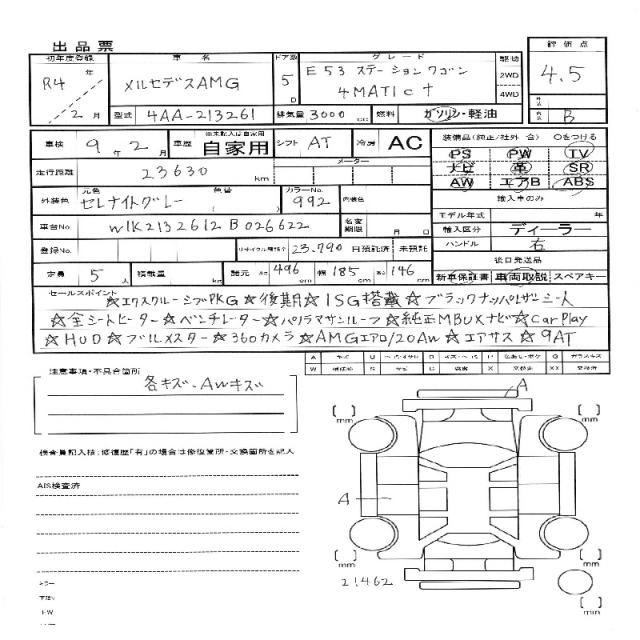 出品票
初年度登録 車名 ドア数 グレード 駆動 評価点
R4年 / 2月 メルセデスAMG 5D E53 ステーションワゴン 4MATIC+ 2WD 4WD 4.5
型式 4AA-213261 排気量 3000 cc 燃料 ガソリン・軽油 B
車検 9年 2月 車歴 ※未記入は自家用 自家用 シフト AT 冷房 AC 装備品(純正/社外 含) Oをつける
走行距離 23630 km メーター PS PW TV
ナビ 革 SR
AW エアB ABS
外装色 元色 セレナイトグレー 色替 カラーNo. 992 内装色 輸入車のみ
モデル年式 年
車台No. W1K2132612B026622 名変期限 月 日 輸入区分 ディーラー
登録No. リサイクル預託金 23.790 円 預託済 未預託 ハンドル 右
後日発送品
定員 5人 積載量 kg 諸元 長さ 496 cm 幅 185 cm 高さ 146 cm 新車保証書 車両取説 スペアキー
セールスポイント
☆エクスクルーシブPKG☆後期☆ISG搭載☆ブラックナッパレザーシート
☆全シートヒーター☆ベンチレーター☆パノラマサンルーフ☆純正MBUXナビ☆CarPlay
☆HUD☆ブルメスター☆360カメラ☆AMGエアロ/20AW☆エアサス☆9AT
注意事項・不具合箇所
各キズ、AWキズ
検査員記入欄:修復歴「有」の場合は修復箇所・交換箇所を記入
AIS検査済
A
A
mm
mm
mm
mm
21462